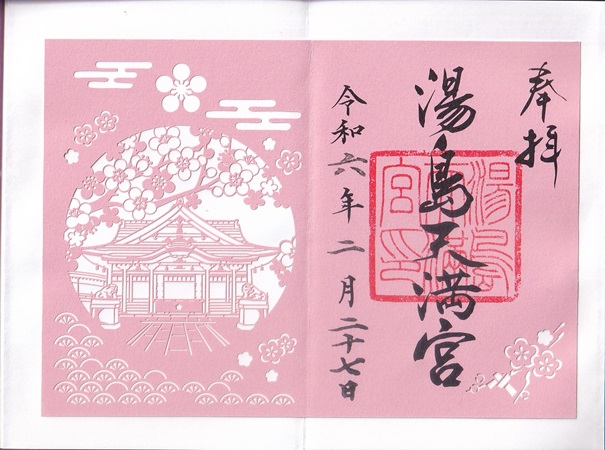 奉拝
湯島天満宮
令和六年二月二十七日
湯島天満宮印